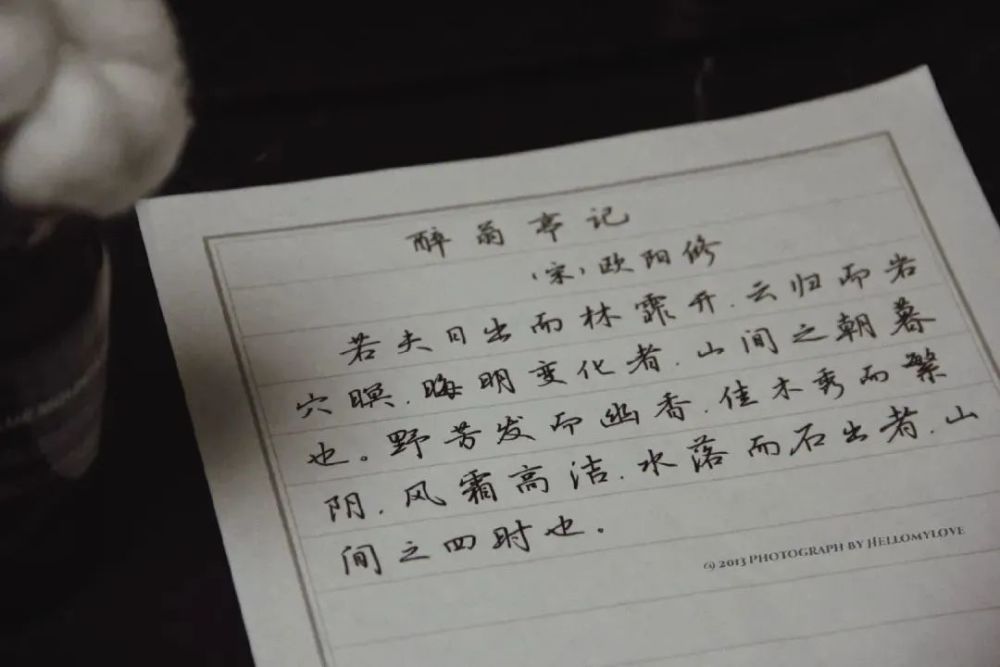 醉翁亭记
(宋)欧阳修
若夫日出而林霏开.云归而岩
穴暝.晦明变化者.山间之朝暮
也。野芳发而幽香.佳木秀而繁
阴.风霜高洁.水落而石出者.山
间之四时也.
© 2013 PHOTOGRAPH BY HELLOMYLOVE